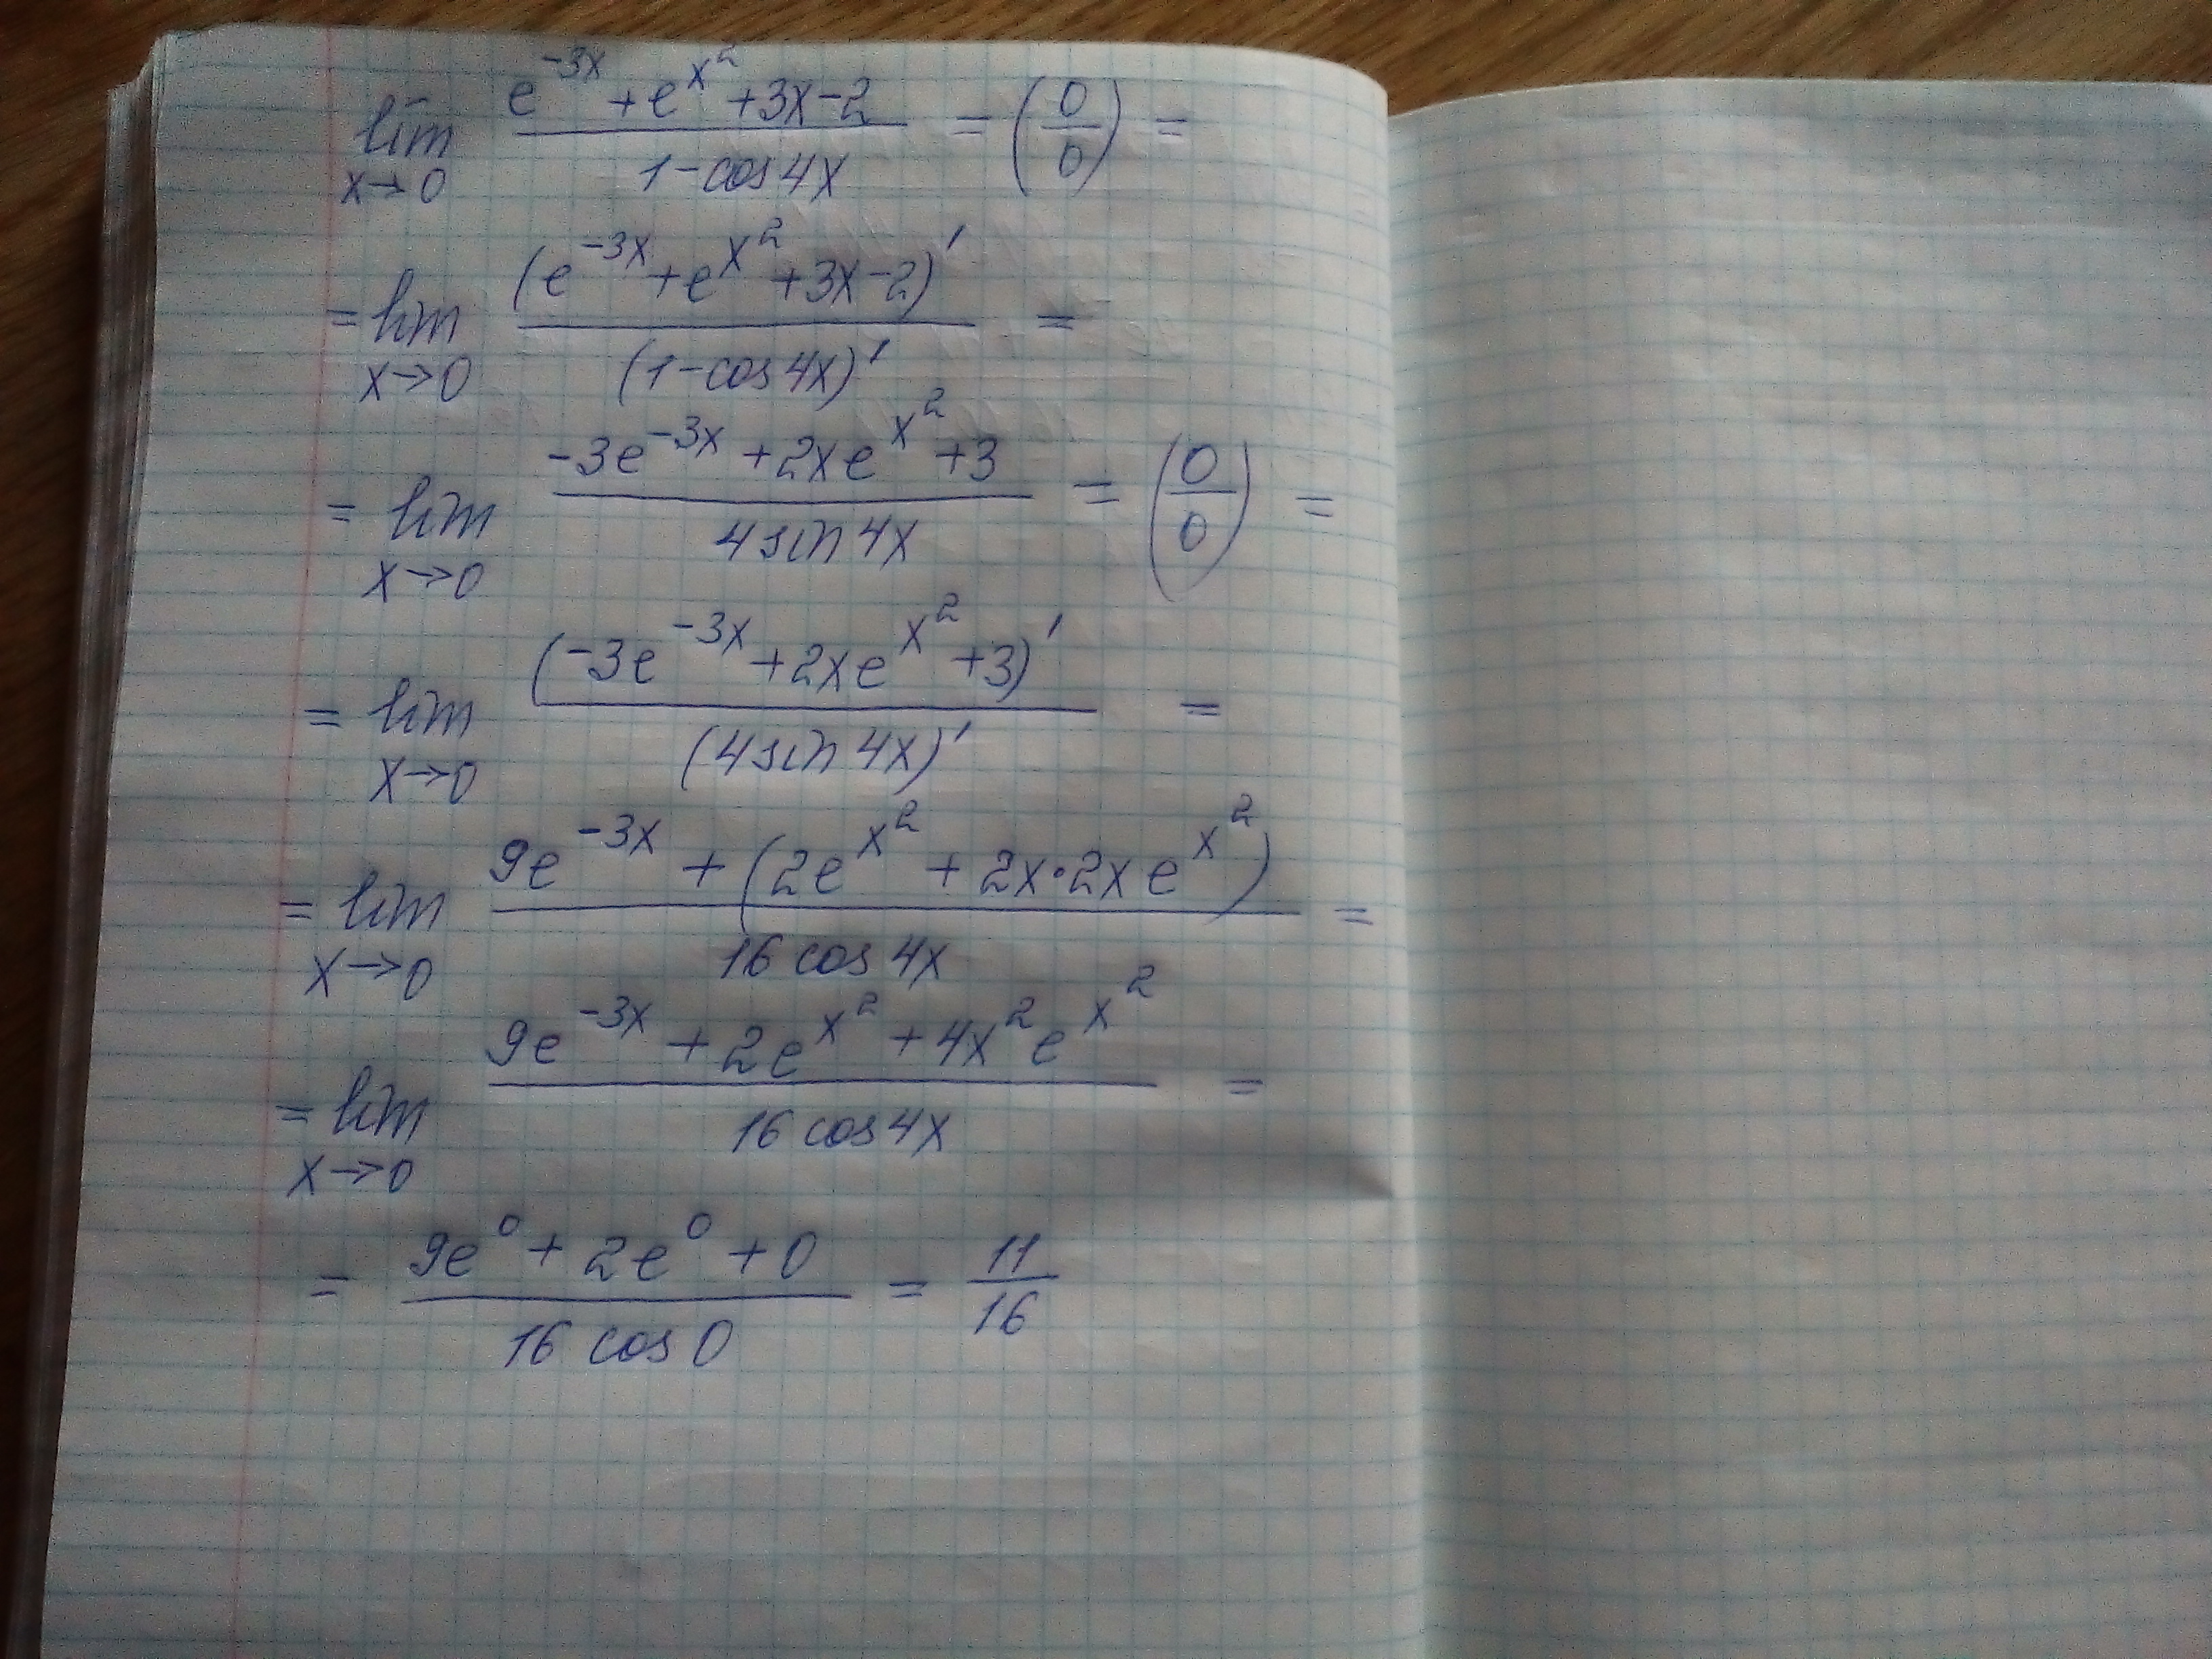 lim x→0 (e^{-3x} + e^{x^2} + 3x - 2)/(1 - cos 4x) = (0/0) =
= lim x→0 (e^{-3x} + e^{x^2} + 3x - 2)'/(1 - cos 4x)' =
= lim x→0 (-3e^{-3x} + 2xe^{x^2} + 3)/(4 sin 4x) = (0/0) =
= lim x→0 (-3e^{-3x} + 2xe^{x^2} + 3)'/(4 sin 4x)' =
= lim x→0 (9e^{-3x} + (2e^{x^2} + 2x·2xe^{x^2}))/(16 cos 4x) =
= lim x→0 (9e^{-3x} + 2e^{x^2} + 4x^2e^{x^2})/(16 cos 4x) =
= (9e^0 + 2e^0 + 0)/(16 cos 0) = 11/16